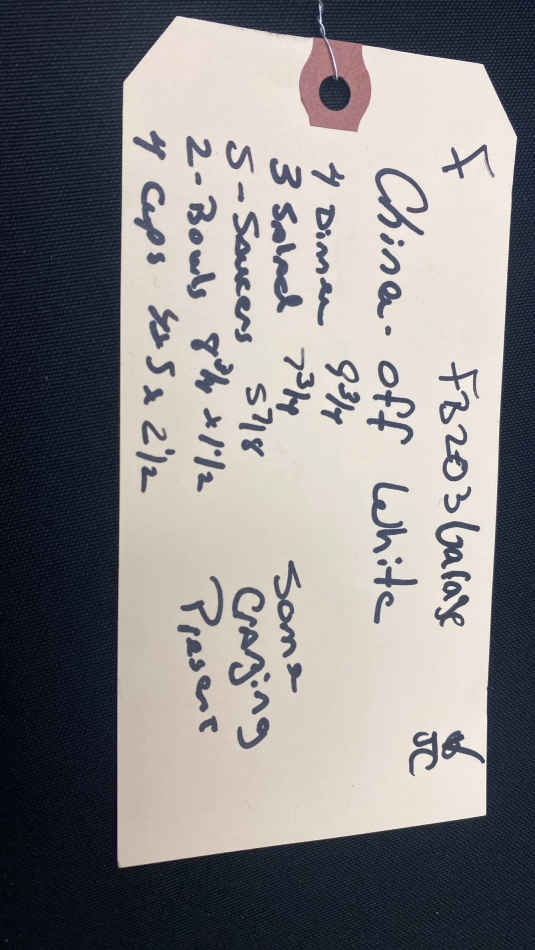 F FB203 Garage
China. off White
4 Dinner 9 3/4
3 Salad 7 3/4
5 - Saucers 5 7/8
2 - Bowls 8 3/4 x 1 1/2
4 Cups 5 x 2 1/2
Some
Crazing
Present
JC